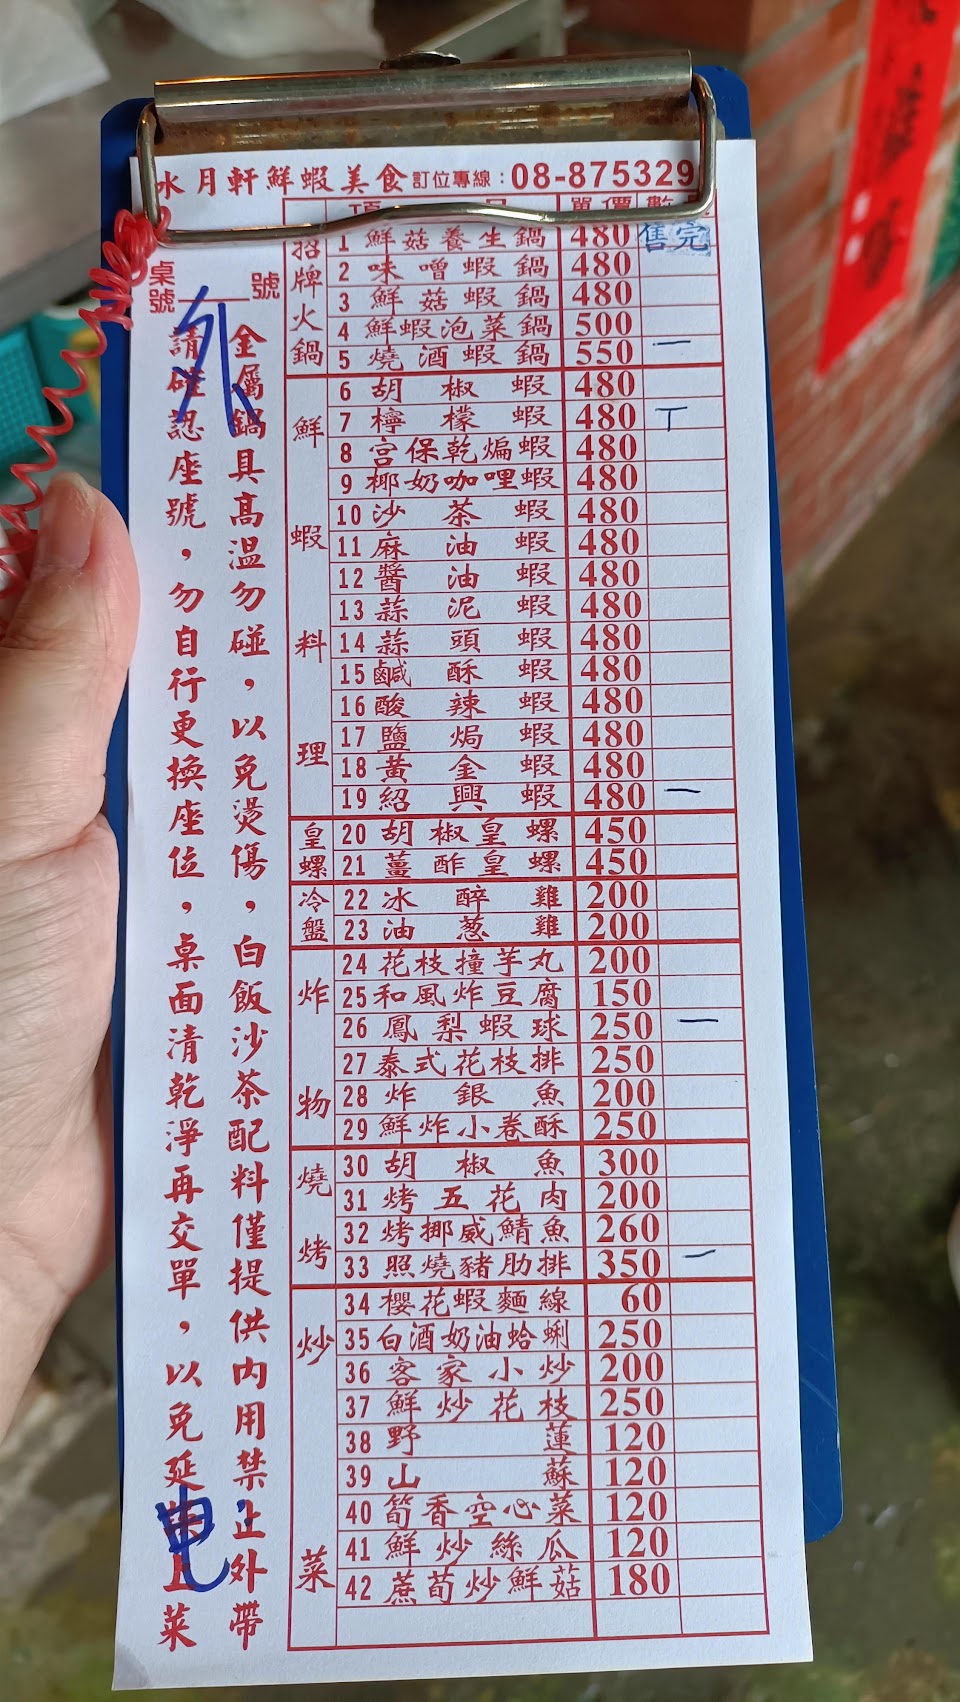 水月軒鮮蝦美食 訂位專線：08-875329
單價
招牌火鍋
1 鮮菇養生鍋 480 售完
2 味噌蝦鍋 480
3 鮮菇蝦鍋 480
4 鮮蝦泡菜鍋 500
5 燒酒蝦鍋 550 一
鮮蝦料理
6 胡椒蝦 480
7 檸檬蝦 480 丅
8 宮保乾煸蝦 480
9 椰奶咖哩蝦 480
10 沙茶蝦 480
11 麻油蝦 480
12 醬油蝦 480
13 蒜泥蝦 480
14 蒜頭蝦 480
15 鹹酥蝦 480
16 酸辣蝦 480
17 鹽焗蝦 480
18 黃金蝦 480
19 紹興蝦 480 一
皇螺
20 胡椒皇螺 450
21 薑酢皇螺 450
冷盤
22 冰醉雞 200
23 油蔥雞 200
炸物
24 花枝撞芋丸 200
25 和風炸豆腐 150
26 鳳梨蝦球 250 一
27 泰式花枝排 250
28 炸銀魚 200
29 鮮炸小卷酥 250
燒烤
30 胡椒魚 300
31 烤五花肉 200
32 烤挪威鯖魚 260
33 照燒豬肋排 350 一
炒菜
34 櫻花蝦麵線 60
35 白酒奶油蛤蜊 250
36 客家小炒 200
37 鮮炒花枝 250
38 野蓮 120
39 山蘇 120
40 筍香空心菜 120
41 鮮炒絲瓜 120
42 蔗荀炒鮮菇 180
桌號 號
外
金屬鍋具高溫勿碰，以免燙傷，白飯沙茶配料僅提供內用禁止外帶
請確認座號，勿自行更換座位，桌面清乾淨再交單，以免延誤上菜